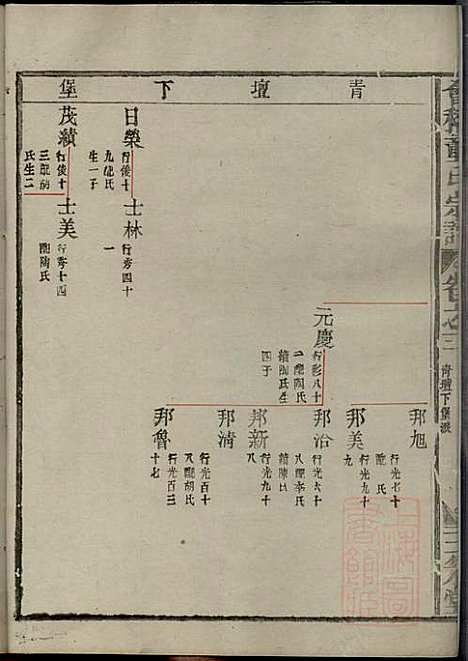 青壇下堡
邦旭
行光七十
配氏
邦美
行光九十
九
元慶
行彭八十
一配陶氏
續陶氏生
四子
邦治
行光六十
八配李氏
續陳氏
邦新
行光九十
八
邦清
行光百十
邦魯
行光百三
八配胡氏
十七
日榮
行俊十
九配氏
生一子
士林
行秀四十
一
茂績
行俊十
三配胡
氏生二
士美
行秀十四
配陶氏
會稽氏宗譜卷之三
青壇下堡派